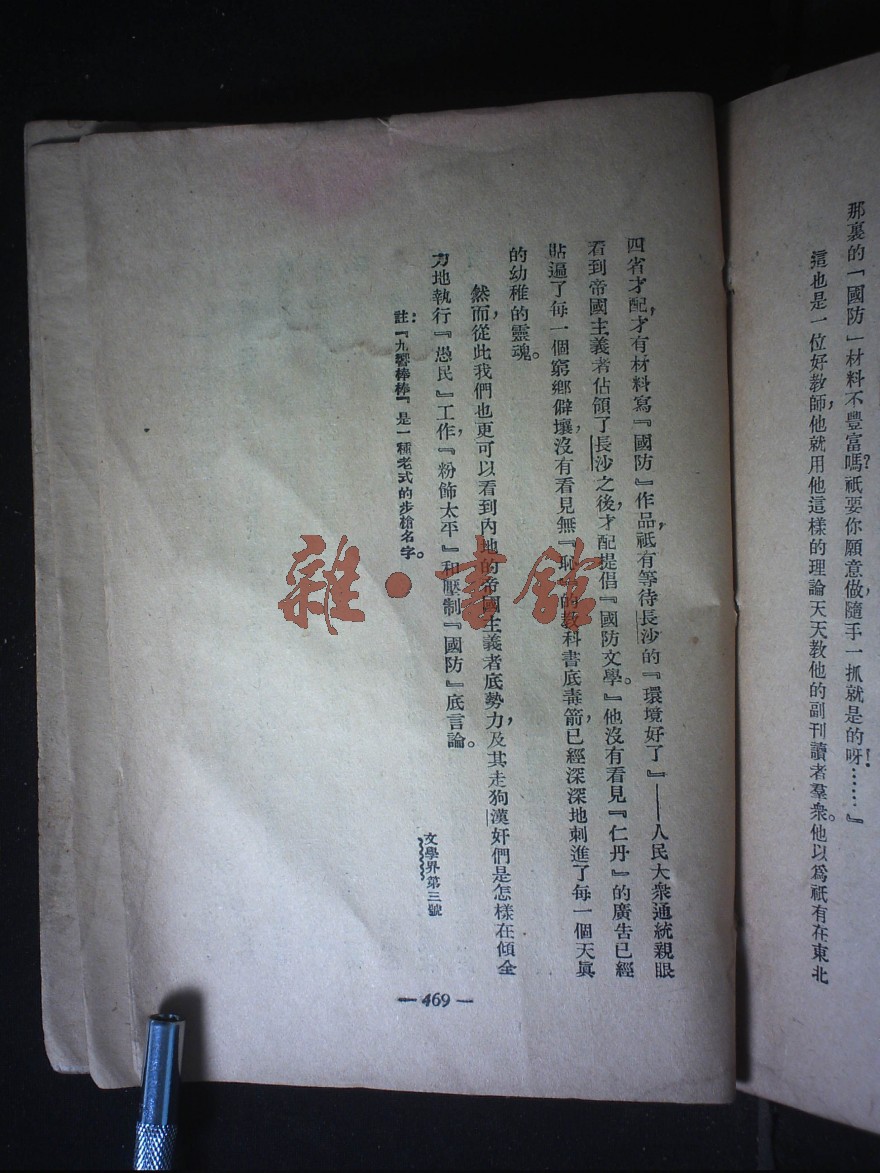 那裏的『國防』材料不豐富嗎?祇要你願意做,隨手一抓就是的呀!……』
這也是一位好教師,他就用他這樣的理論天天教他的副刊讀者羣衆。他以爲祇有在東北
四省才配,才有材料寫『國防』作品,祇有等待長沙的『環境好了』——人民大衆通統親眼
看到帝國主義者佔領了長沙之後,才配提倡『國防文學。』他沒有看見『仁丹』的廣告已經
貼遍了每一個窮鄉僻壤,沒有看見無『恥』的教科書底毒箭,已經深深地刺進了每一個天眞
的幼稚的靈魂。
然而,從此我們也更可以看到內地的帝國主義者底勢力,及其走狗漢奸們是怎樣在傾全
力地執行『愚民』工作,『粉飾太平』和壓制『國防』底言論。
註:『九響棒棒』是一種老式的步槍名字。
文學界第三號
— 469 —
雜·書館